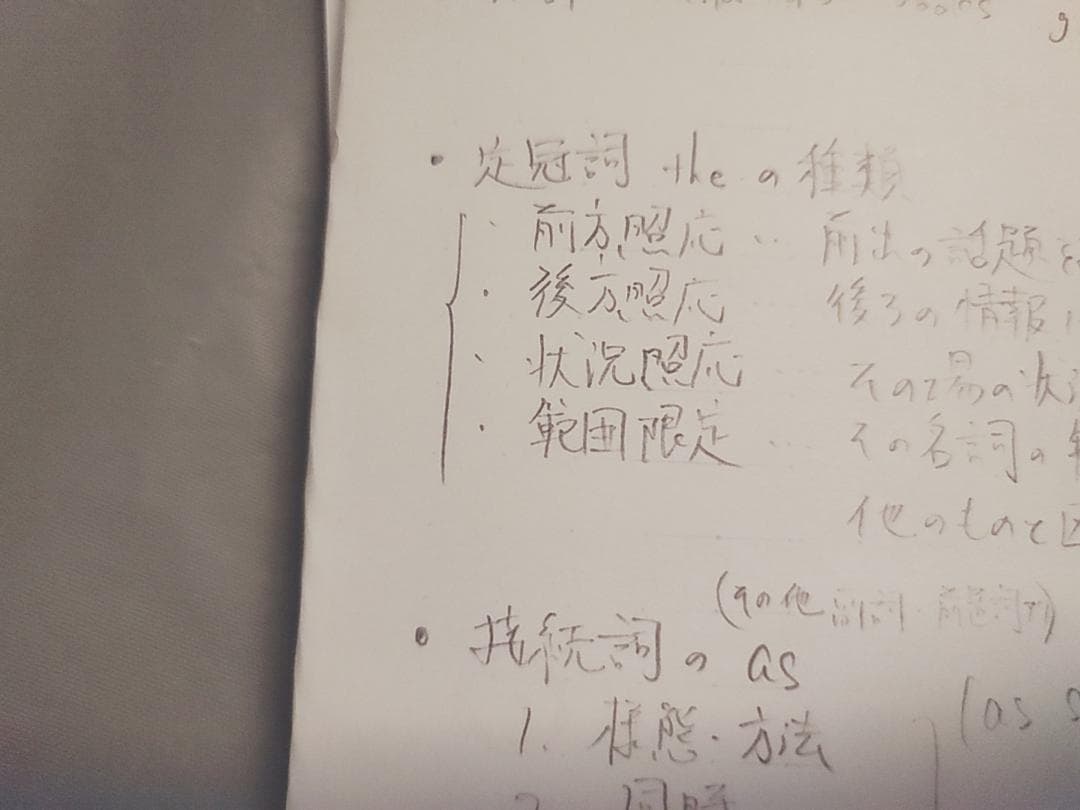 ・定冠詞 the の種類
・前方照応 … 前出の話題を
・後方照応 … 後ろの情報
・状況照応 … その場の状
・範囲限定 … その名詞の
他のものと区
(その他 副詞・前置詞)
・接続詞の as
1. 様態・方法
(as
2. 同時